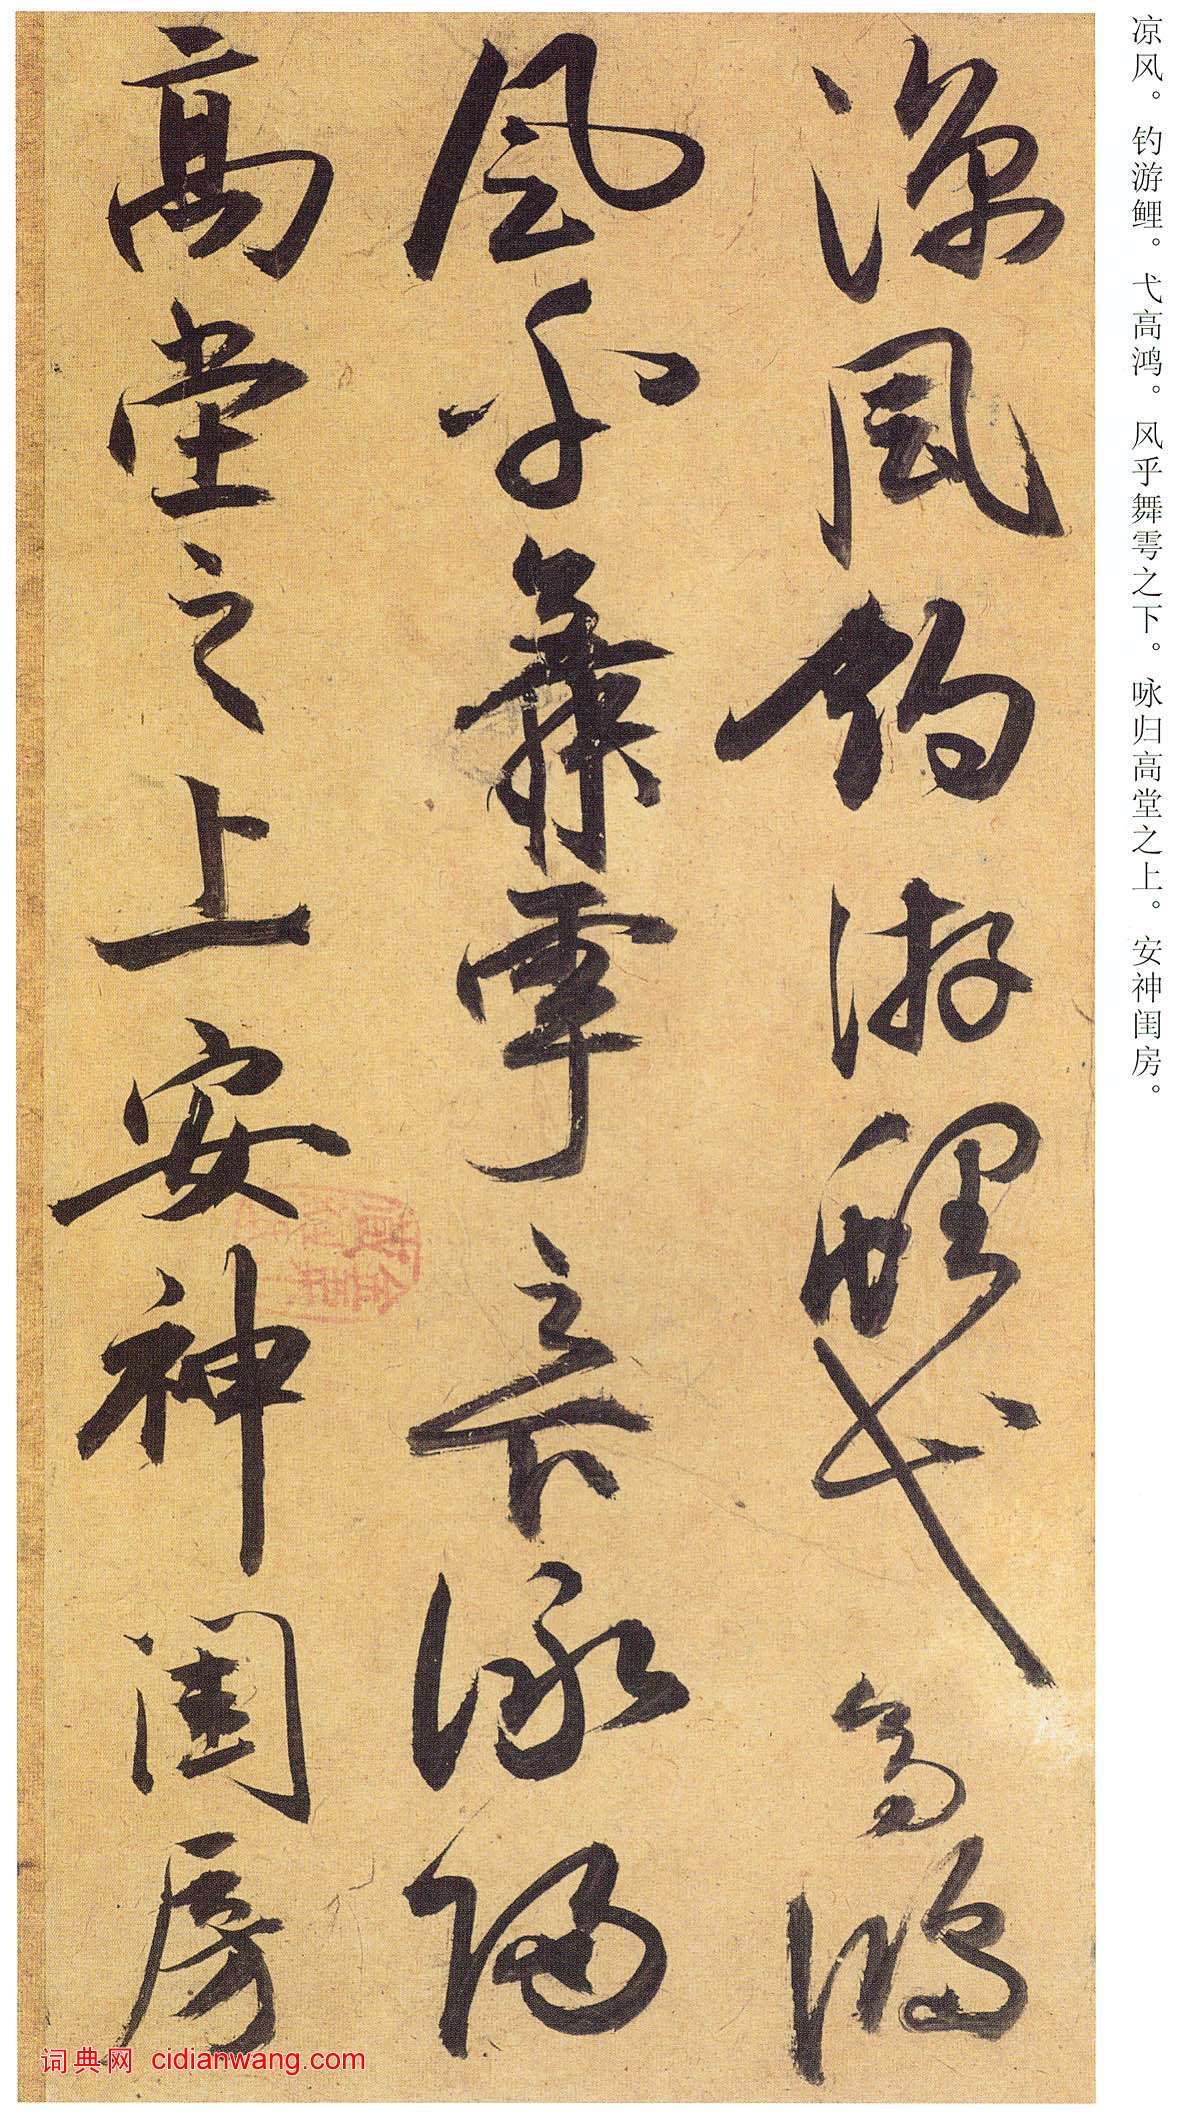 凉风。钓游鲤。弋高鸿。风乎舞雩之下。咏归高堂之上。安神闺房。
涼風釣游鯉弋高鴻
風乎舞雩之下詠歸
高堂之上安神閨房
词典网 cidianwang.com